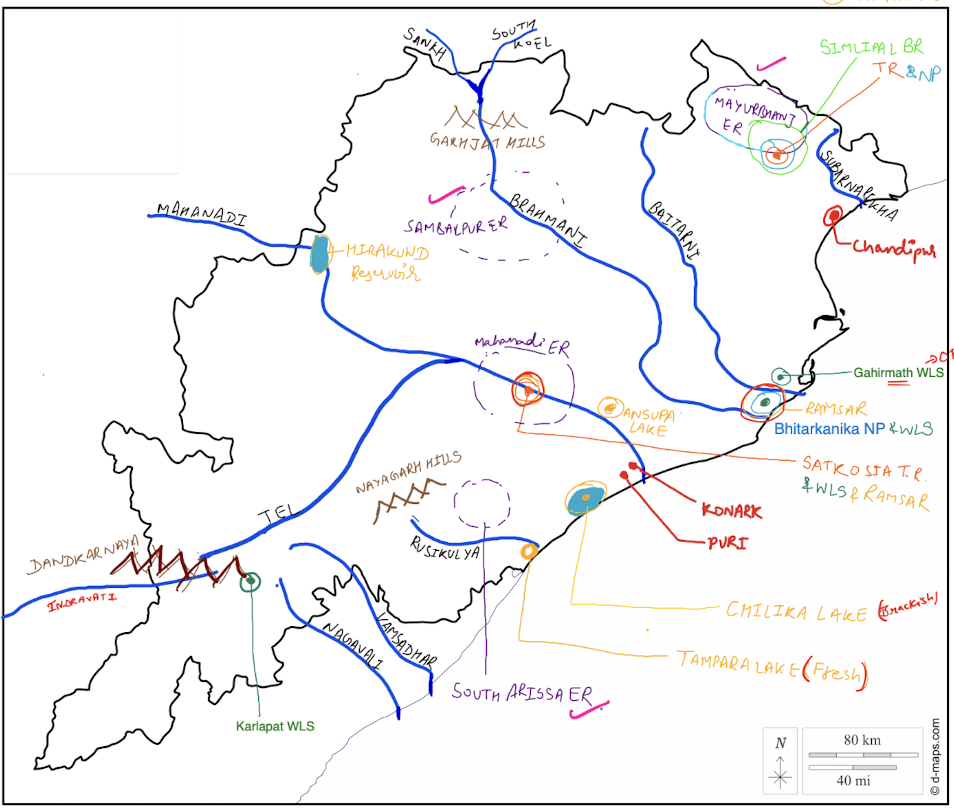 SANKH
SOUTH
KOEL
SIMLIPAL BR
TR & NP
MAYURBHANJ
ER
GARHJAT HILLS
SUBARNAREKHA
MAHANADI
SAMBALPUR ER
BRAHMANI
BAITARNI
HIRAKUND
Reservoir
Chandipur
Mahanadi ER
Gahirmath WLS
ANSUPA
LAKE
RAMSAR
Bhitarkanika NP & WLS
NAYAGARH HILLS
SATKOSIA T.R.
& WLS & RAMSAR
KONARK
TEL
RUSIKULYA
PURI
DANDKARNAYA
INDRAVATI
CHILIKA LAKE (Brackish)
NAGAVALI
VAMSADHAR
TAMPARA LAKE (Fresh)
SOUTH ARISSA ER
Karlapat WLS
N
80 km
40 mi
© d-maps.com